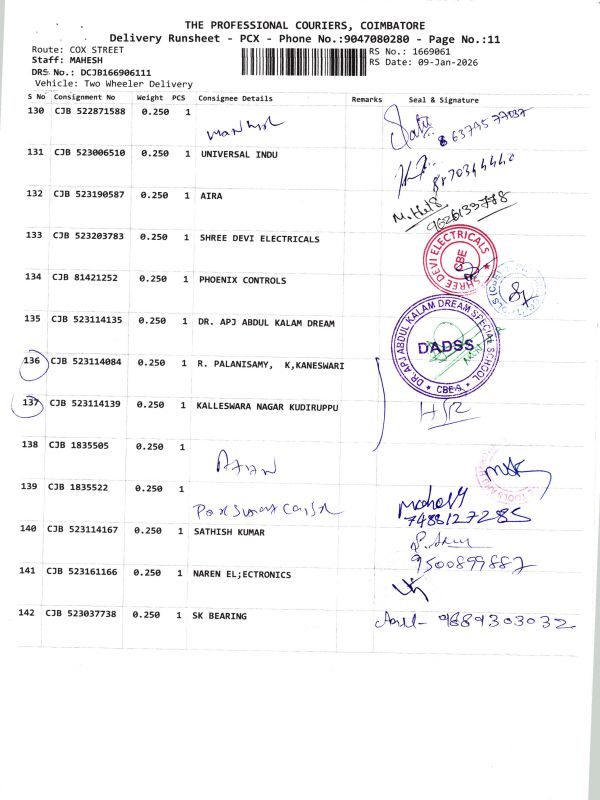 THE PROFESSIONAL COURIERS, COIMBATORE
Delivery Runsheet - PCX - Phone No.:9047080280 - Page No.:11
Route: COX STREET
RS No.: 1669061
Staff: MAHESH
RS Date: 09-Jan-2026
DRS No.: DCJB166906111
Vehicle: Two Wheeler Delivery
S No Consignment No Weight PCS Consignee Details Remarks Seal & Signature
130 CJB 522871588 0.250 1
131 CJB 523006510 0.250 1 UNIVERSAL INDU
132 CJB 523190587 0.250 1 AIRA
133 CJB 523203783 0.250 1 SHREE DEVI ELECTRICALS
SHREE DEVI ELECTRICALS
CBE
134 CJB 81421252 0.250 1 PHOENIX CONTROLS
135 CJB 523114135 0.250 1 DR. APJ ABDUL KALAM DREAM
DR. APJ ABDUL KALAM DREAM SPECIAL SCHOOL
DADSS
136 CJB 523114084 0.250 1 R. PALANISAMY, K,KANESWARI
137 CJB 523114139 0.250 1 KALLESWARA NAGAR KUDIRUPPU
138 CJB 1835505 0.250 1
139 CJB 1835522 0.250 1
7488127285
140 CJB 523114167 0.250 1 SATHISH KUMAR
9500899887
141 CJB 523161166 0.250 1 NAREN EL;ECTRONICS
142 CJB 523037738 0.250 1 SK BEARING
9889303032